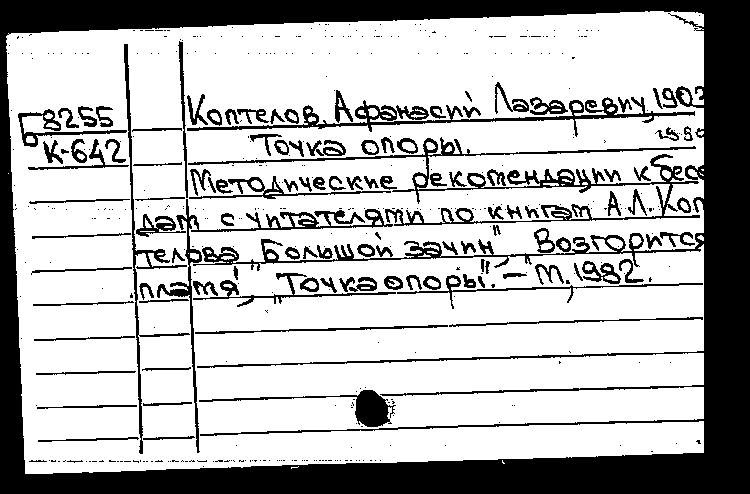 Б8255
К-642
Коптелов, Афанасий Лазаревич, 1903
Точка опоры.
Методические рекомендации к бесе
дам с читателями по книгам А.Л. Коп
телова „Большой зачин", „Возгорится
пламя", „Точка опоры". – М., 1982.